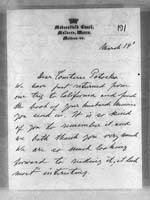 Madresfield Court,
Malvern, Worcs.
191
March 19th
Dear Countess Potocka
We have just returned from
our trip to California and find
the book of your husband's
you send us. It is so kind
of you to remember it and
we both thank you very much
We are so much looking
forward to reading it, it looks
most interesting.